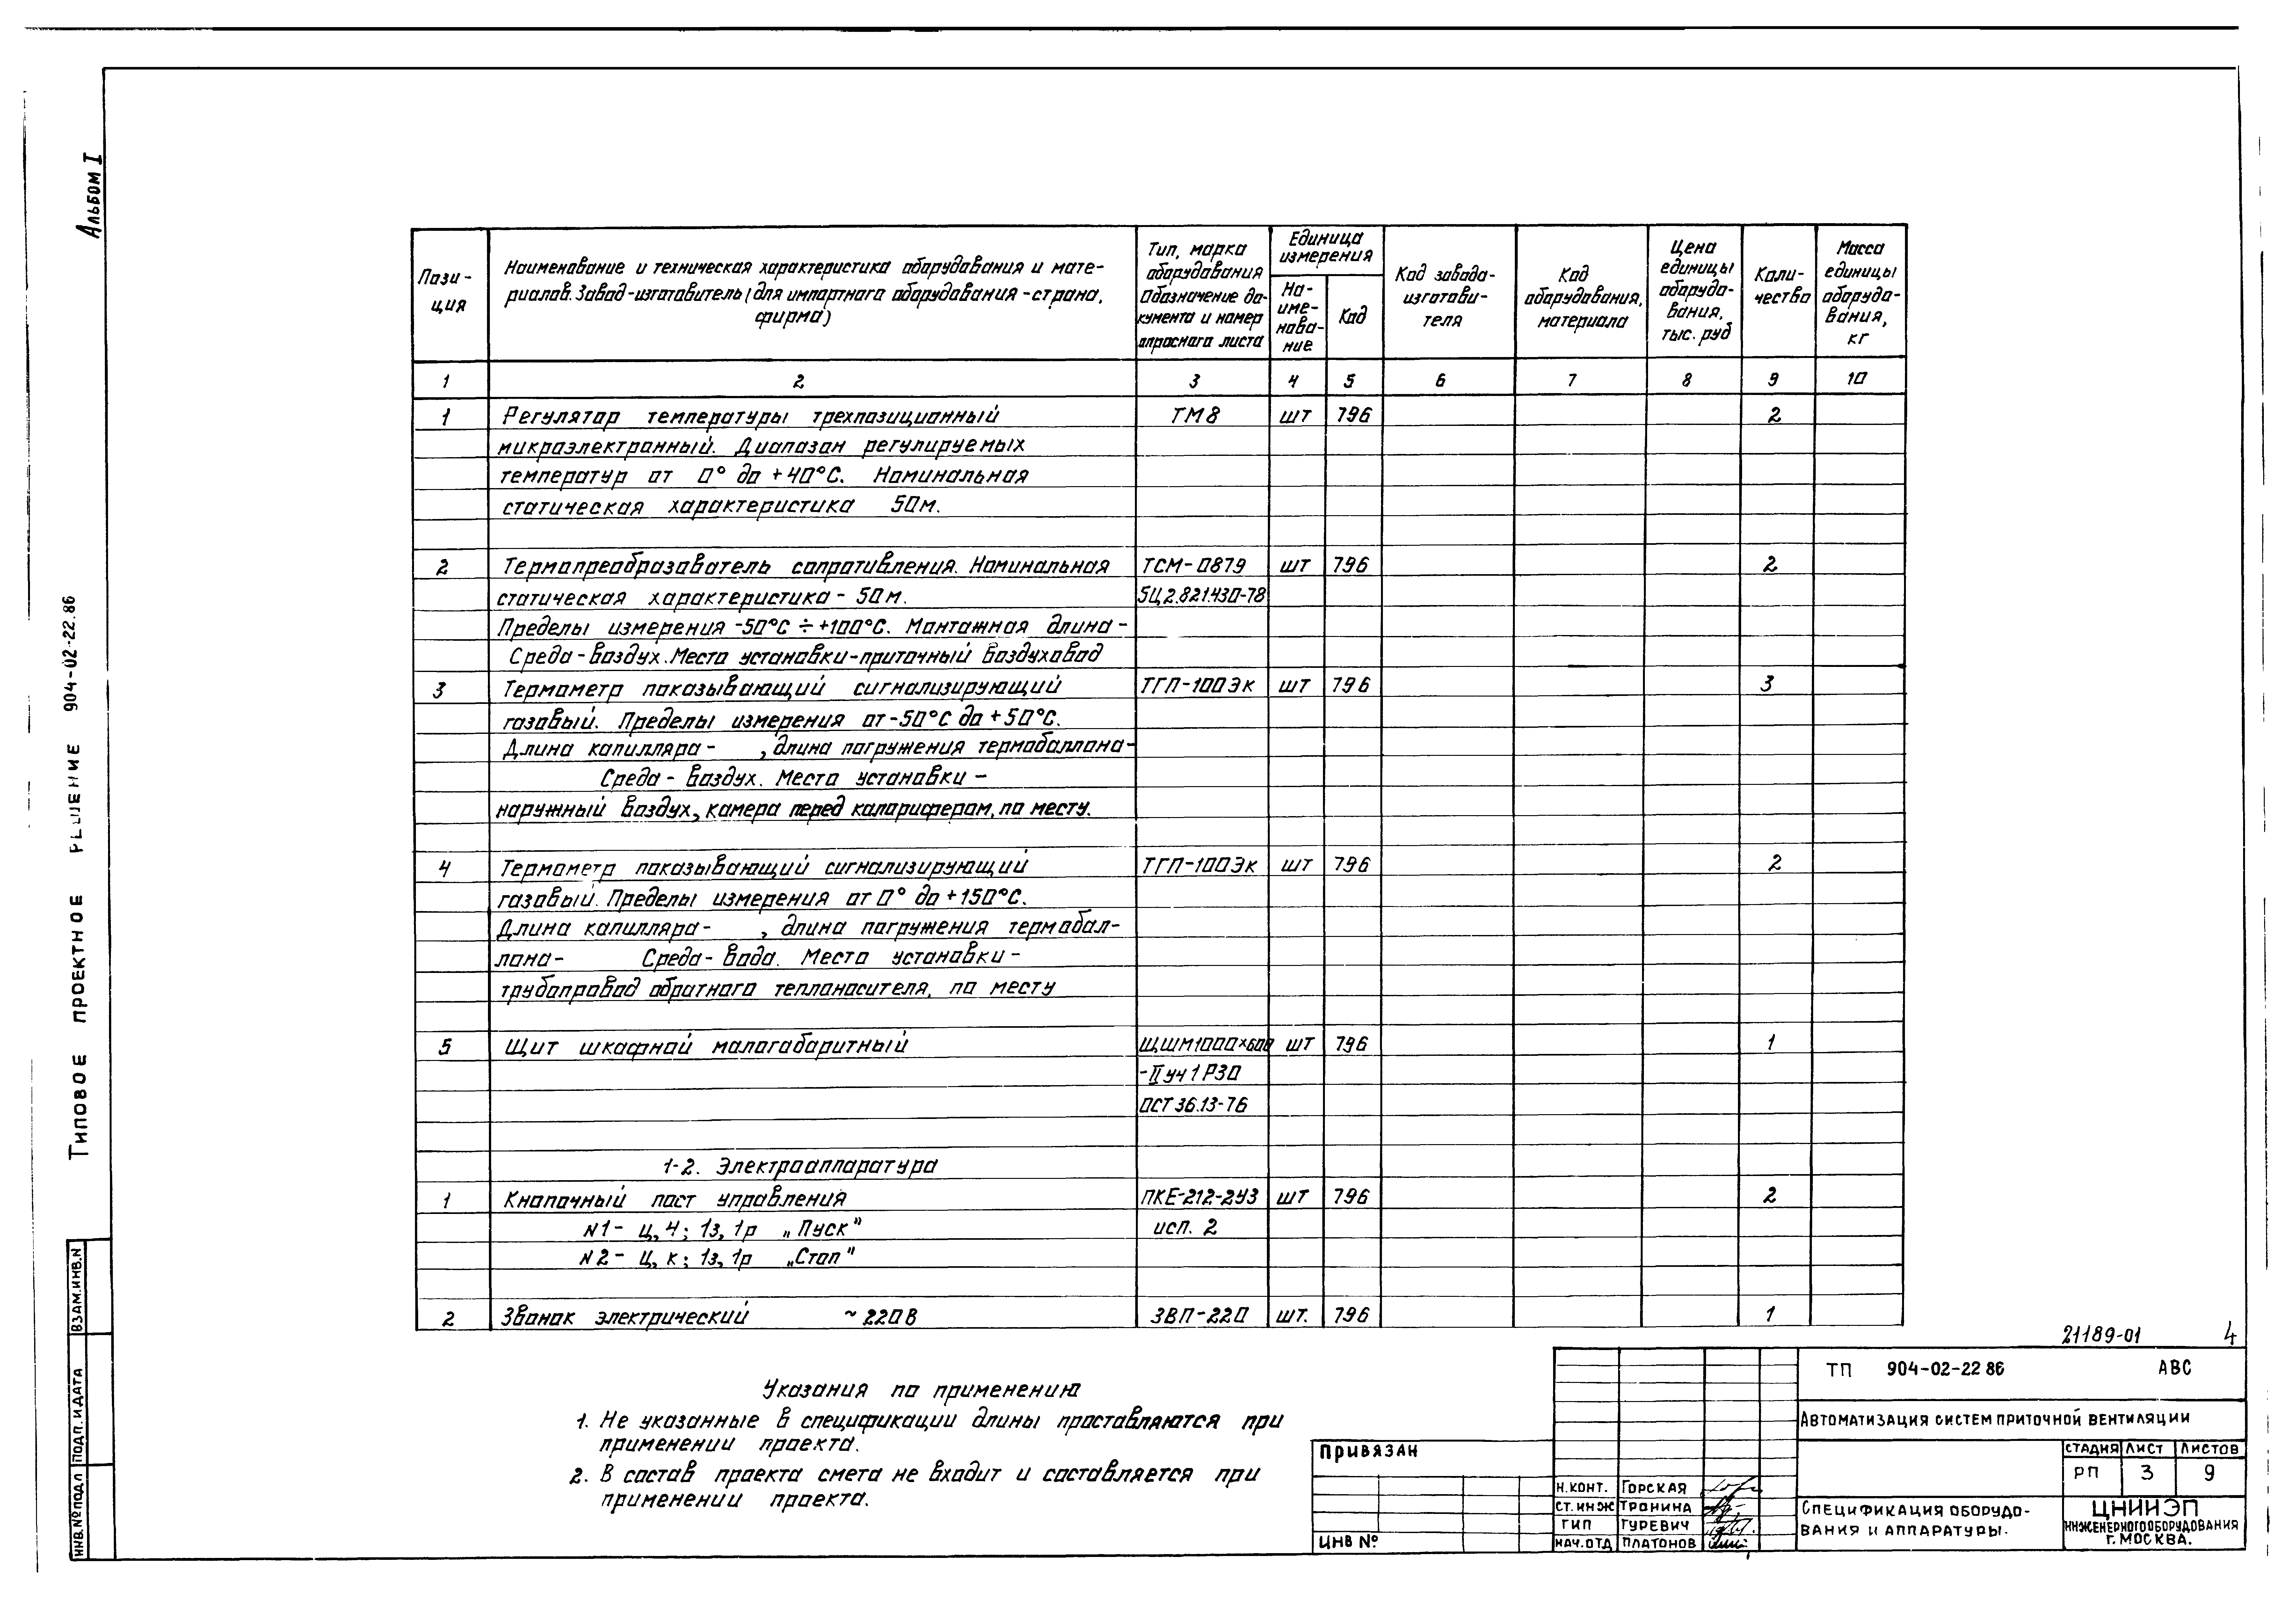 Альбом I
Типовое проектное решение 904-02-22.86
Пози-
ция
Наименование и техническая характеристика оборудования и мате-
риалов. Завод-изготовитель (для импортного оборудования - страна,
фирма)
Тип, марка
оборудования
Обозначение до-
кумента и номер
опросного листа
Единица
измерения
На-
име-
нова-
ние
Код
Код завода-
изготови-
теля
Код
оборудования,
материала
Цена
единицы
оборудо-
вания,
тыс. руб
Коли-
чество
Масса
единицы
оборудо-
вания,
кг
1 2 3 4 5 6 7 8 9 10
1 Регулятор температуры трехпозиционный ТМ8 шт 796 2
микроэлектронный. Диапазон регулируемых
температур от 0° до +40°С. Номинальная
статическая характеристика 50м.
2 Термопреобразователь сопротивления. Номинальная ТСМ-0879 шт 796 2
статическая характеристика - 50м. 5Ц2.821.430-78
Пределы измерения -50°С ÷ +100°С. Монтажная длина -
Среда - воздух. Место установки - приточный воздуховод
3 Термометр показывающий сигнализирующий ТГП-100Эк шт 796 3
газовый. Пределы измерения от -50°С до +50°С.
Длина капилляра - , длина погружения термобаллона -
Среда - воздух. Место установки -
наружный воздух, камера перед калорифером, по месту.
4 Термометр показывающий сигнализирующий ТГП-100Эк шт 796 2
газовый. Пределы измерения от 0° до +150°С.
Длина капилляра - , длина погружения термобал-
лона - Среда - вода. Место установки -
трубопровод обратного теплоносителя, по месту
5 Щит шкафной малогабаритный ЩШМ1000×600 шт 796 1
-II уч 1 Р30
ОСТ 36.13-76
1-2. Электроаппаратура
1 Кнопочный пост управления ПКЕ-212-2У3 шт 796 2
N1 - Ц, Ч; 1з, 1р „Пуск" исп. 2
N2 - Ц, К; 1з, 1р „Стоп"
2 Звонок электрический ~220В ЗВП-220 шт. 796 1
Указания по применению
1. Не указанные в спецификации длины проставляются при
применении проекта.
2. В состав проекта смета не входит и составляется при
применении проекта.
21189-01 4
ТП 904-02-22 86 АВС
Автоматизация систем приточной вентиляции
Стадия Лист Листов
РП 3 9
Спецификация оборудо-
вания и аппаратуры.
ЦНИИЭП
инженерного оборудования
г. Москва.
Привязан
Инв №
Н.конт. Горская
Ст.инж Тронина
ГИП Гуревич
Нач.отд Платонов
Взам.инв.N
Подп. и дата
Инв.№ подл